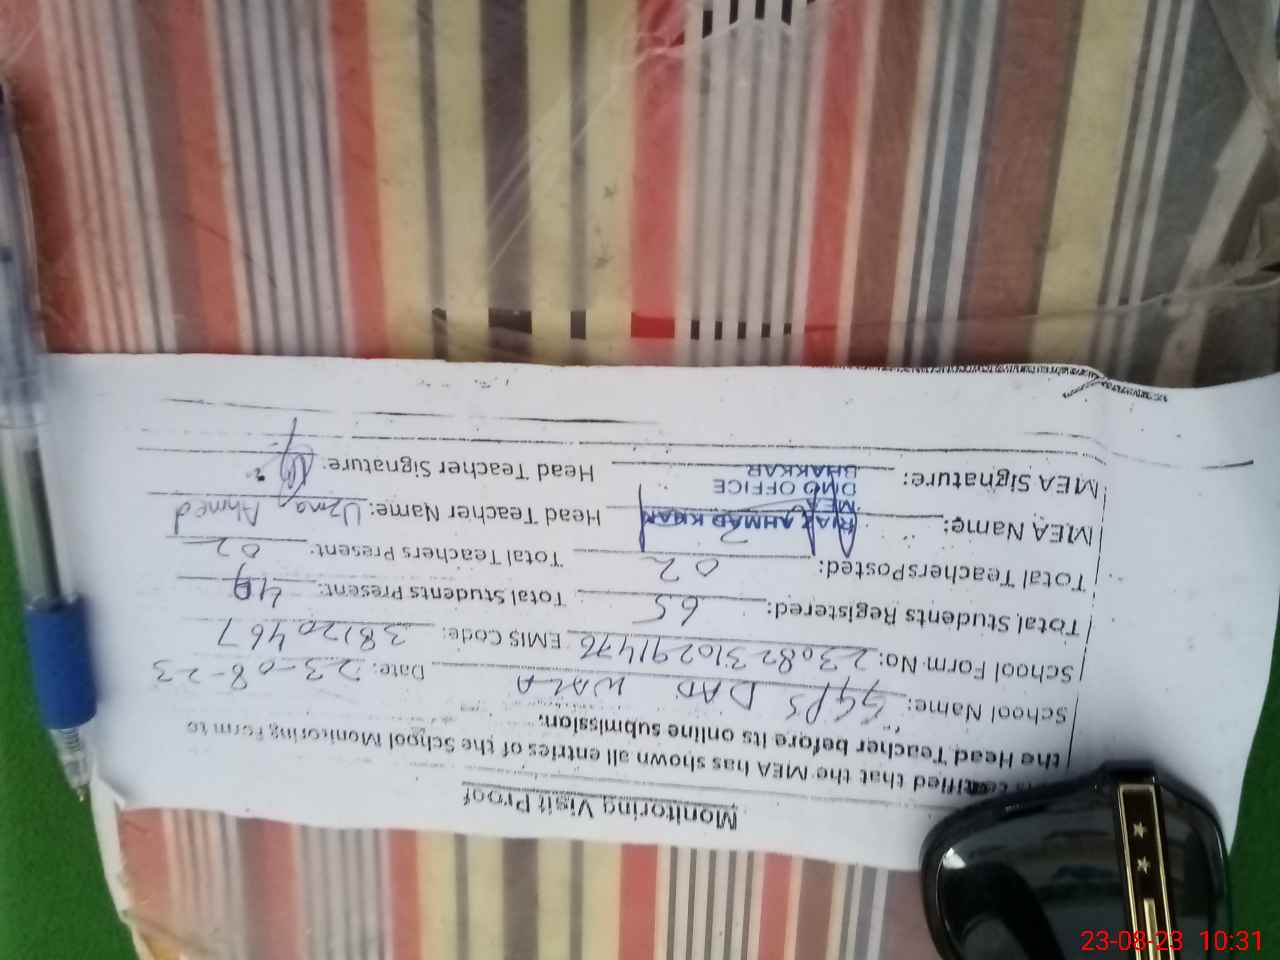 Monitoring Visit Proof
is certified that the MEA has shown all entries of the School Monitoring Form to
the Head Teacher before its online submission.
School Name: GGPS DAD WALA Date: 23-08-23
School Form No: 23082310291476 EMIS Code: 38120467
Total Students Registered: 65 Total Students Present: 49
Total TeachersPosted: 02 Total Teachers Present: 02
MEA Name: RIAZ AHMAD KHAN Head Teacher Name: Uzma Ahmed
MEA
DMO OFFICE
BHAKKAR
MEA Signature: Head Teacher Signature:
23-08-23 10:31